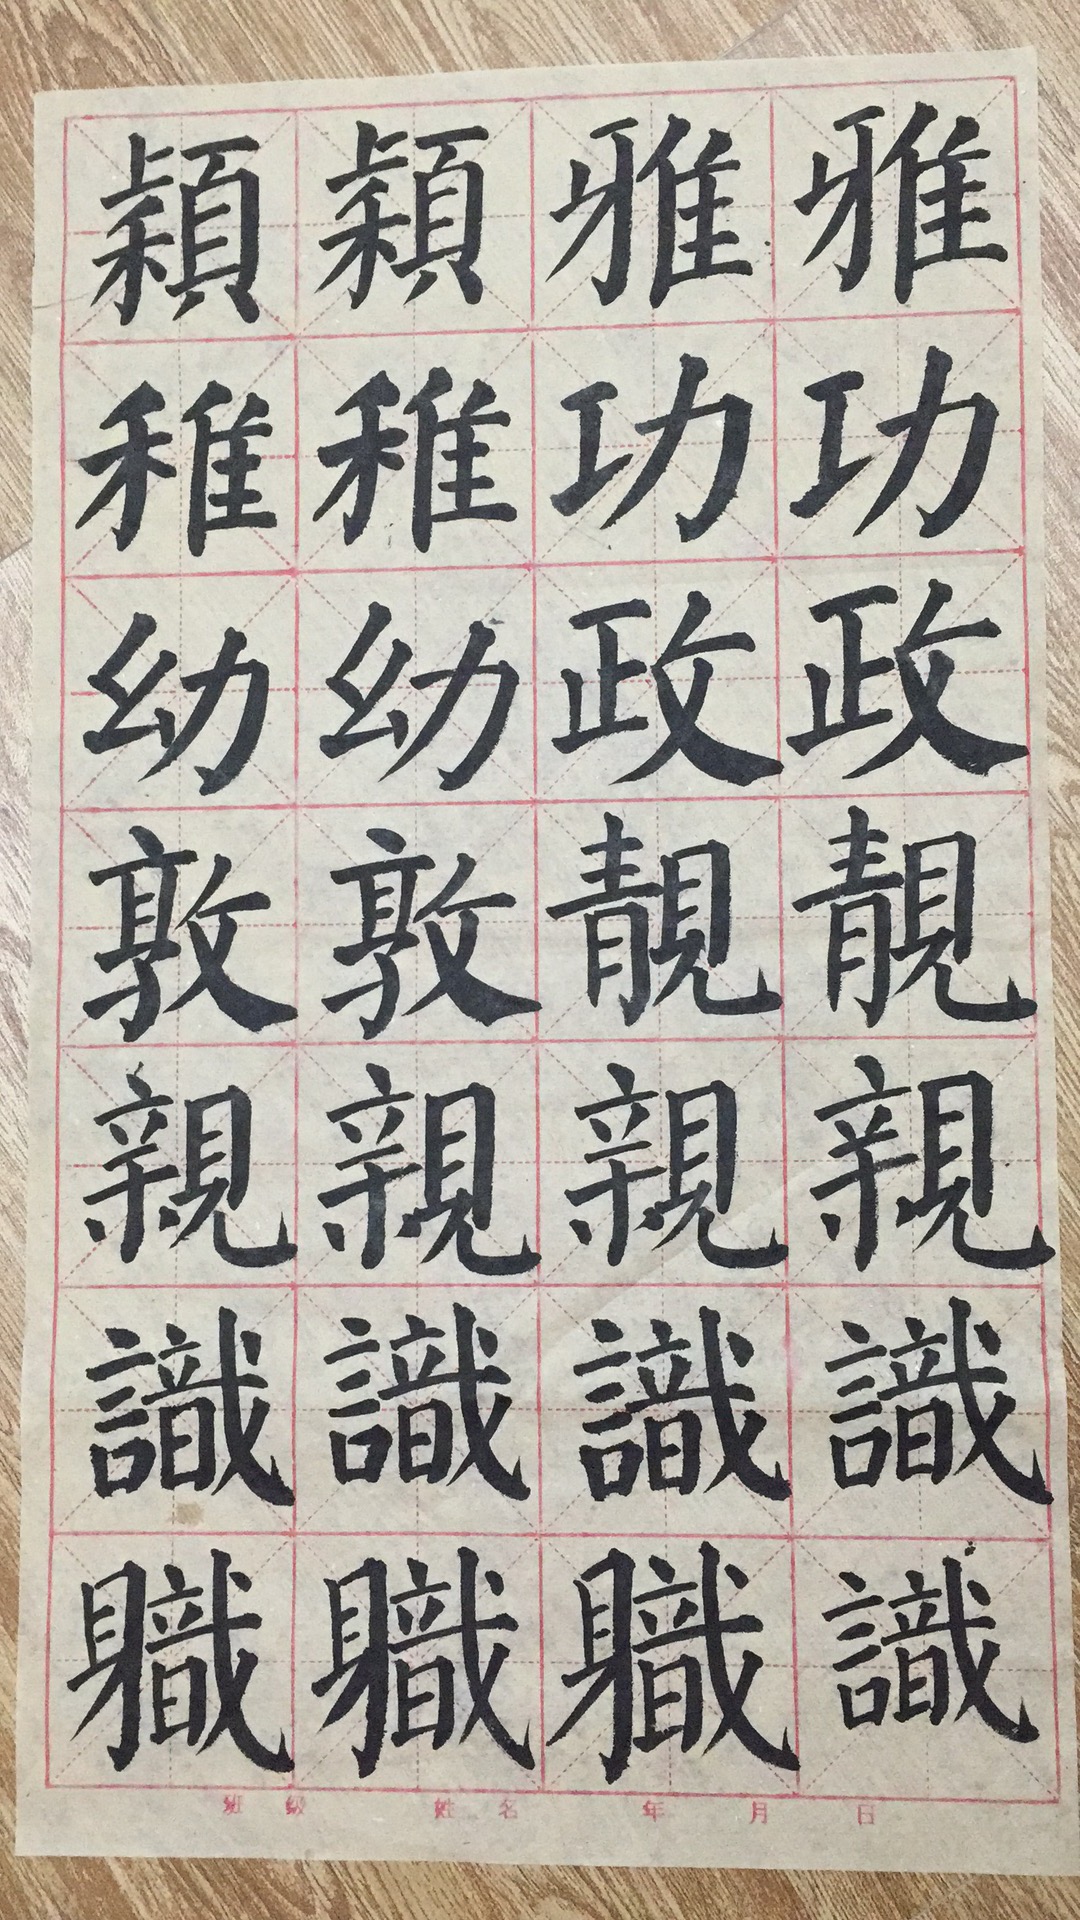 雅功政靚親識識
雅功政靚親識軄
穎稚幼敦親識軄
穎稚幼敦親識軄
班級 姓名 年 月 日